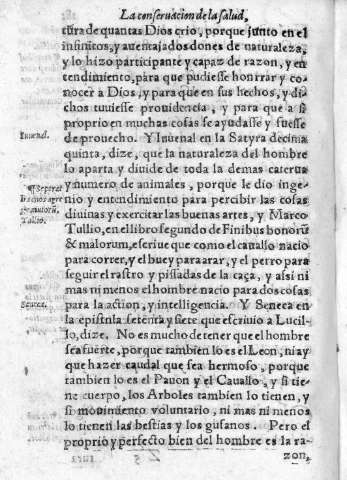 La conseruacion de la salud,
tura de quantas Dios crio, porque junto en el
infinitos, y auentajados dones de naturaleza,
y lo hizo participante y capaz de razon, y en
tendimiento, para que pudiesse honrrar y co-
nocer a Dios, y para que en sus hechos, y di-
chos tuuiesse prouidencia, y para que a si
proprio en muchas cosas se ayudasse y fuesse
de prouecho. Y Iuuenal en la Satyra decima
Iuuenal.
quinta, dize, que la naturaleza del hombre
lo aparta y diuide de toda la demas caterua
y numero de animales, porque le dio inge-
nio y entendimiento para percibir las cosas
diuinas y exercitar las buenas artes, y Marco
Tullio.
Tullio, en el libro segundo de Finibus bonorū
& malorum, escriue que como el cauallo nacio
para correr, y el buey para arar, y el perro para
seguir el rastro y pissadas de la caça, y assi ni
mas ni menos el hombre nacio para dos cosas
para la action, y intelligencia. Y Seneca en
Seneca.
la epistola setenta y siete que escriuio a Lucil-
lo, dize. No es mucho de tener que el hombre
sea fuerte, porque tambien lo es el Leon, ni ay
que hazer caudal que sea hermoso, porque
tambien lo es el Pauon y el Cauallo, y si tie-
ne cuerpo, los Arboles tambien lo tienen, y
si mouimiento voluntario, ni mas ni menos
lo tienen las bestias y los gusanos. Pero el
proprio y perfecto bien del hombre es la ra-
zon,